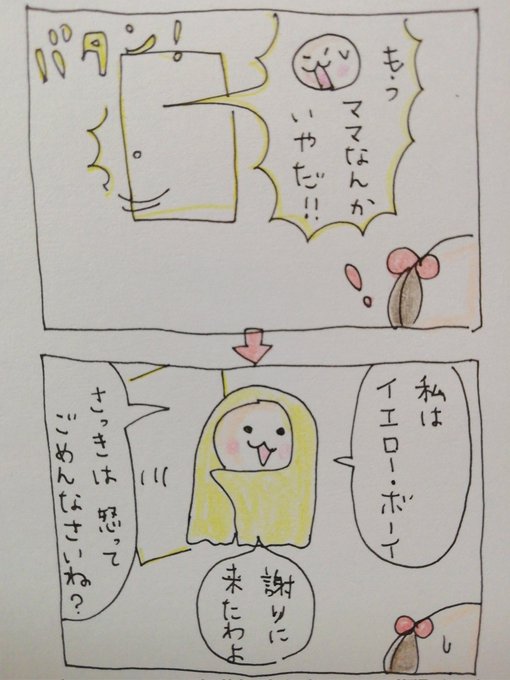 バタン!
もうママなんかいやだ!!
私はイエロー・ボーイ
謝りに来たわよ
さっきは怒ってごめんなさいね?